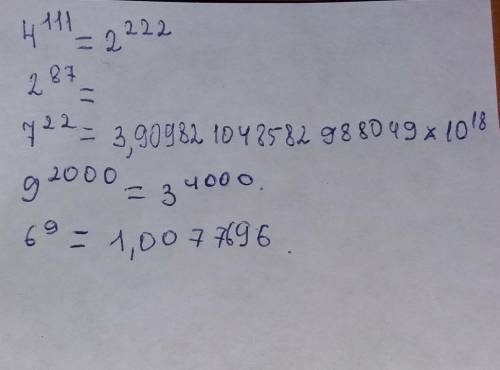 4^111 = 2^222
2^87 =
7^22 = 3,909821048582988049 × 10^18
9^2000 = 3^4000.
6^9 = 1,0077696.